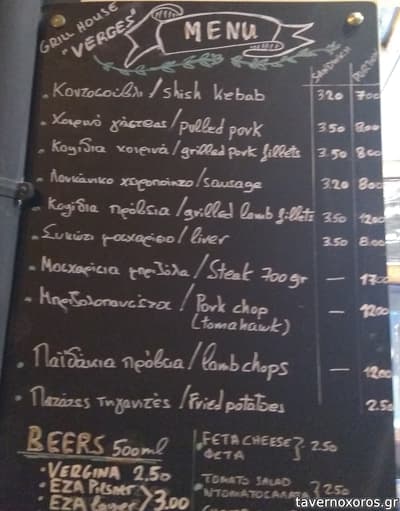 GRILL HOUSE
"VERGES"
MENU
SANDWICH
- Κοντοσούβλι / Shish Kebab 3.20 7.00
- Χοιρινό γάστρας / pulled pork 3.50 8.00
- Κοψίδια χοιρινά / grilled pork fillets 3.50 8.00
- Λουκάνικο χειροποίητο / sausage 3.20 8.00
- Κοψίδια πρόβεια / grilled lamb fillets 3.50 12.00
- Συκώτι μοσχαρίσιο / liver 3.50 8.00
- Μοσχαρίσια μπριζόλα / Steak 700gr — 17.00
- / Pork chop — 12.00
(tomahawk)
- Παϊδάκια πρόβεια / lamb chops — 12.00
- Πατάτες τηγανιτές / Fried potatoes 2.50
BEERS 500ml
• VERGINA 2,50
• EZA Pilsner
• EZA Lager > 3.00
FETA CHEESE
ΦΕΤΑ } 2.50
TOMATO SALAD
ΝΤΟΜΑΤΟΣΑΛΑΤΑ } 2.50
tavernoxoros.gr